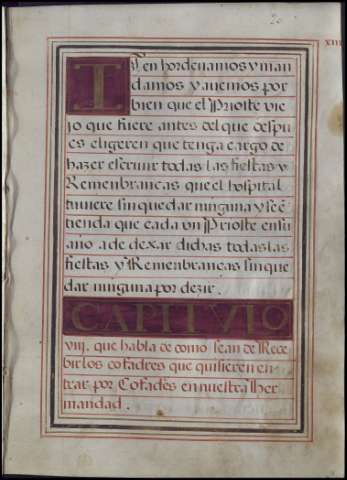 20
xiii
Iten hordenamos y man
damos y auemos por
bien que el Prioste vie
jo que fuere antes del que despu
es eligeren que tenga cargo de
hazer seruir todas las fiestas y
Remembranças que el hospital
tuuiere sin quedar ninguna y se ē
tienda que cada vn Prioste en su
año a de dexar dichas todas las
fiestas y Remembranças sin que
dar ninguna por dezir.
CAPITVLO
viij. que habla de como sean de Rece
bir los cofadres que quisieren en
trar por Cofades en nuestra Her
mandad.